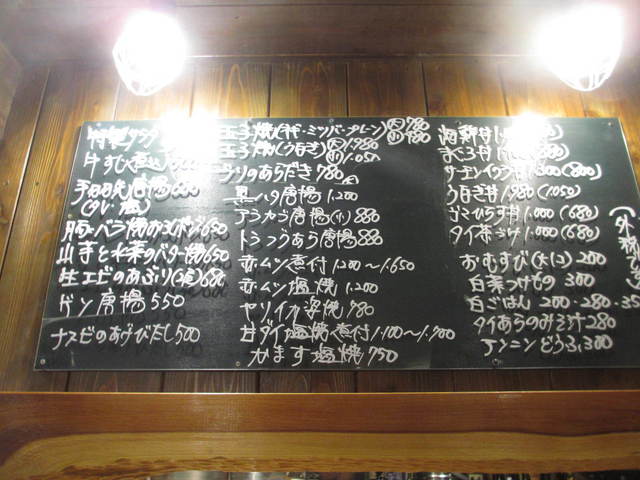 牛すじ煮込
(タレ・塩)
豚バラ焼おろしポン 650
山芋と水菜のバター焼 650
生エビのあぶり(尾) 680
ゲソ唐揚 550
ナスビのあげびたし 500
玉子焼(ネギ・ミツバ・プレーン) (大)780 (小)480
玉子焼(うなぎ) (大)1.980 (小)1.050
ブリのあらだき 780
黒ハタ唐揚 1.200
アラカブ唐揚(小) 880
トラフグあら唐揚 880
赤ムツ煮付 1.200〜1.650
赤ムツ塩焼 1.200
ヤリイカ姿焼 780
甘ダイ塩焼・煮付 1.100〜1.700
かます塩焼 750
海鮮丼
まぐろ丼
サーモンイクラ丼 1.300 (800)
うなぎ丼 1.980 (1.050)
ゴマひらす丼 1.000 (680)
タイ茶づけ 1.000 (680)
おむすび(大1コ) 200
白菜つけもの 300
白ごはん 200・280・35
タイあらのみそ汁 280
アンニンどうふ 300